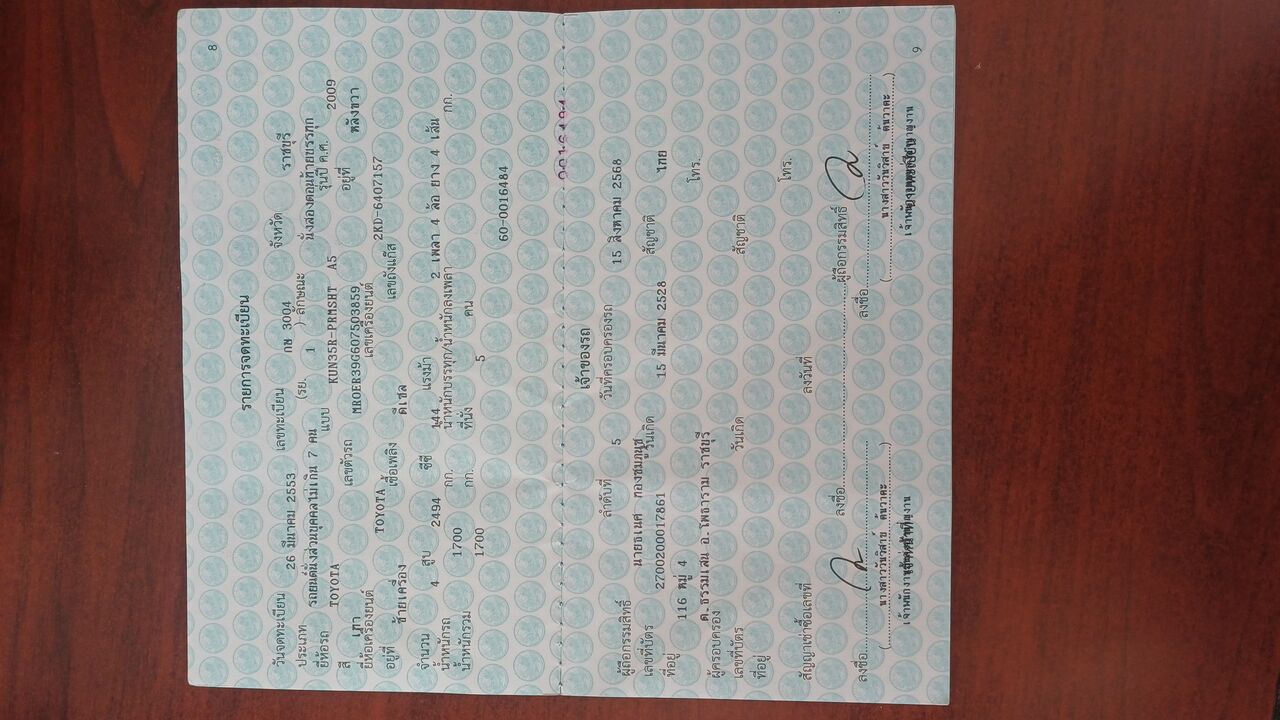 8
รายการจดทะเบียน
วันจดทะเบียน 26 มีนาคม 2553 เลขทะเบียน กษ 3004 จังหวัด ราชบุรี
ประเภท รถยนต์นั่งส่วนบุคคลไม่เกิน 7 คน (รย. 1 ) ลักษณะ นั่งสองตอนท้ายบรรทุก
ยี่ห้อรถ TOYOTA แบบ KUN35R-PRMSHT A5 รุ่นปี ค.ศ. 2009
สี เทา เลขตัวรถ MROER39G607503859 อยู่ที่ หลังขวา
ยี่ห้อเครื่องยนต์ TOYOTA เลขเครื่องยนต์ 2KD-6407157
อยู่ที่ ซ้ายเครื่อง เชื้อเพลิง ดีเซล เลขถังแก๊ส
จำนวน 4 สูบ 2494 ซีซี 144 แรงม้า 2 เพลา 4 ล้อ ยาง 4 เส้น
น้ำหนักรถ 1700 กก. น้ำหนักบรรทุก/น้ำหนักลงเพลา กก.
น้ำหนักรวม 1700 กก. ที่นั่ง 5 คน
60-0016484
เจ้าของรถ
ลำดับที่ 5 วันที่ครอบครองรถ 15 สิงหาคม 2568
ผู้ถือกรรมสิทธิ์ นายธเนศ กองชมภนุช
เลขที่บัตร 2700200017861 วันเกิด 15 มีนาคม 2528 สัญชาติ ไทย
ที่อยู่ 116 หมู่ 4 โทร.
ต.ธรรมเสน อ.โพธาราม ราชบุรี
ผู้ครอบครอง
เลขที่บัตร วันเกิด สัญชาติ
ที่อยู่ โทร.
สัญญาเช่าซื้อเลขที่ ลงวันที่
ลงชื่อ ผู้ถือกรรมสิทธิ์
ลงชื่อ ลงชื่อ
( นางสาววันวิสาข์ ต้นวาคะ ) ( นางสาววันวิสาข์ ต้นวาคะ )
9